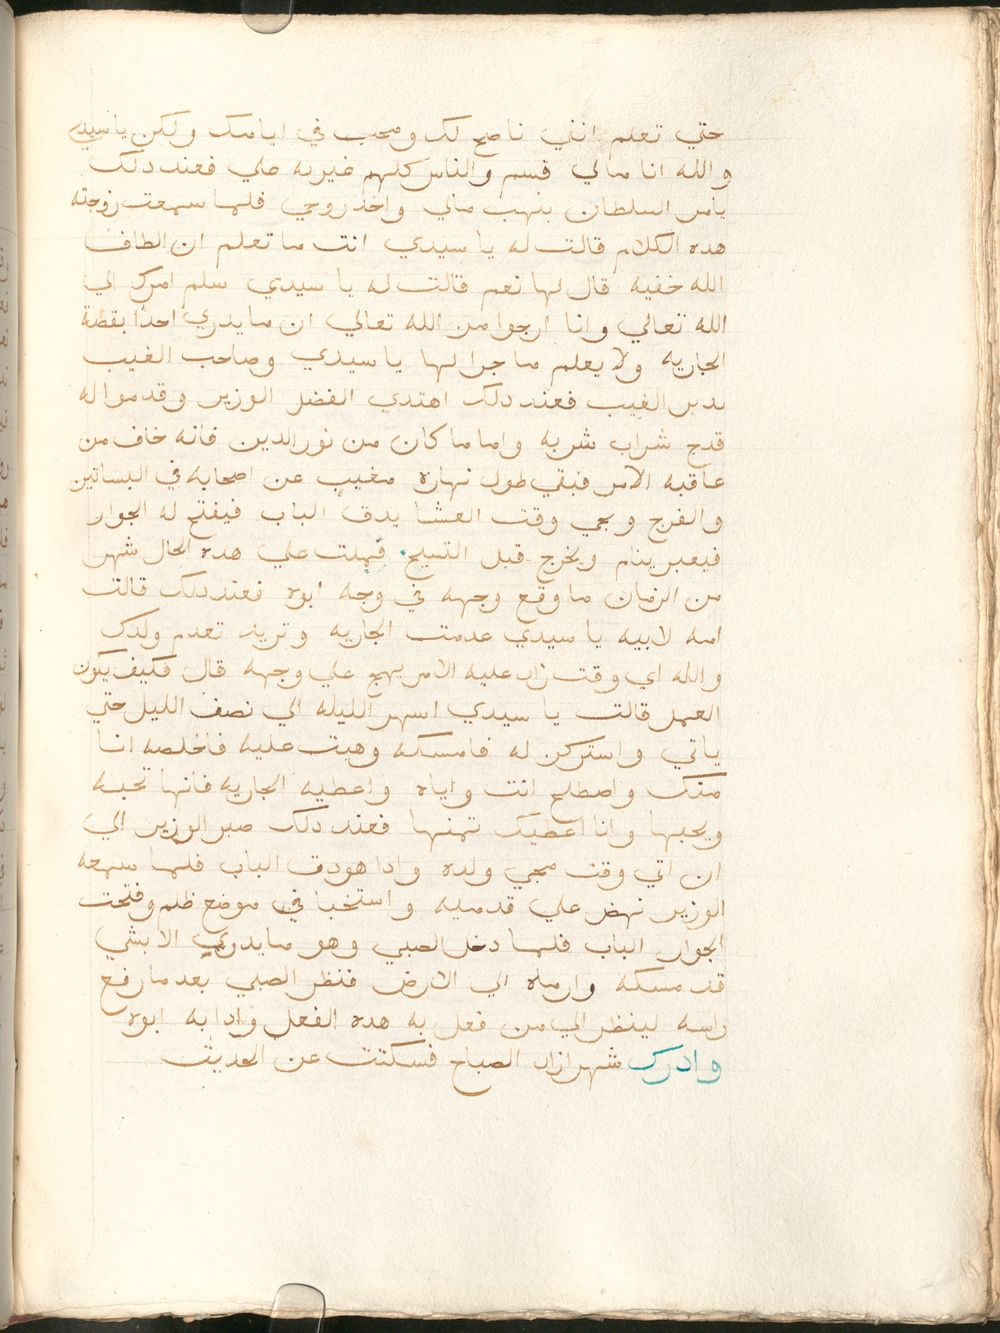 حتي تعلم انني ناصح لك ومحب في ايامك ولكن يا سيدي
والله انا مالي قسم والناس كلهم غيريه علي فعند دلك
يامر السلطان بنهب مالي واخد روحي فلما سمعت زوجته
هده الكلام قالت له يا سيدي انت ما تعلم ان الطاف
الله خفيه قال لها نعم قالت له يا سيدي سلم امرك الي
الله تعالي وانا ارجوا من الله تعالي ان ما يدري احدا بقصة
الجاريه ولا يعلم ما جرا لها يا سيدي وصاحب الغيب
يدبر الغيب فعند دلك اهتدي الفضل الوزير وقدموا له
قدح شراب شربه واما ما كان من نور الدين فانه خاف من
عاقبه الامر فبقي طول نهاره مغيب عن اصحابه في البساتين
والفرج ويجي وقت العشا يدق الباب فيفتح له الجوار
فيعبر ينام ويخرج قبل التسبيح فملت علي هده الحال شهر
من الزمان ما وقع وجهه في وجه ابوه فعند دلك قالت
امه لابيه يا سيدي عدمت الجاريه وتريد تعدم ولدك
والله اي وقت زاد عليه الامر يهج علي وجهه قال فكيف يكون
العمل قالت يا سيدي اسهر الليله الي نصف الليل حتي
ياتي واستركن له فامسكه وهيت عليه فاخلصه انا
منك واصطلح انت واياه واعطيه الجاريه فانها تحبه
ويحبها وانا اعطيك تمنها فعند دلك صبر الوزير الي
ان اتي وقت مجي ولده وادا هو دق الباب فلما سمعه
الوزير نهض علي قدميه واستخبا في موضع ظلم وفتحت
الجوار الباب فلما دخل الصبي وهو ما يدري الا بشي
قد مسكه وارماه الي الارض فنظر الصبي بعد ما رفع
راسه لينظر الي من فعل به هده الفعل وادا به ابوه
وادرك شهرازاد الصباح فسكتت عن الحديث